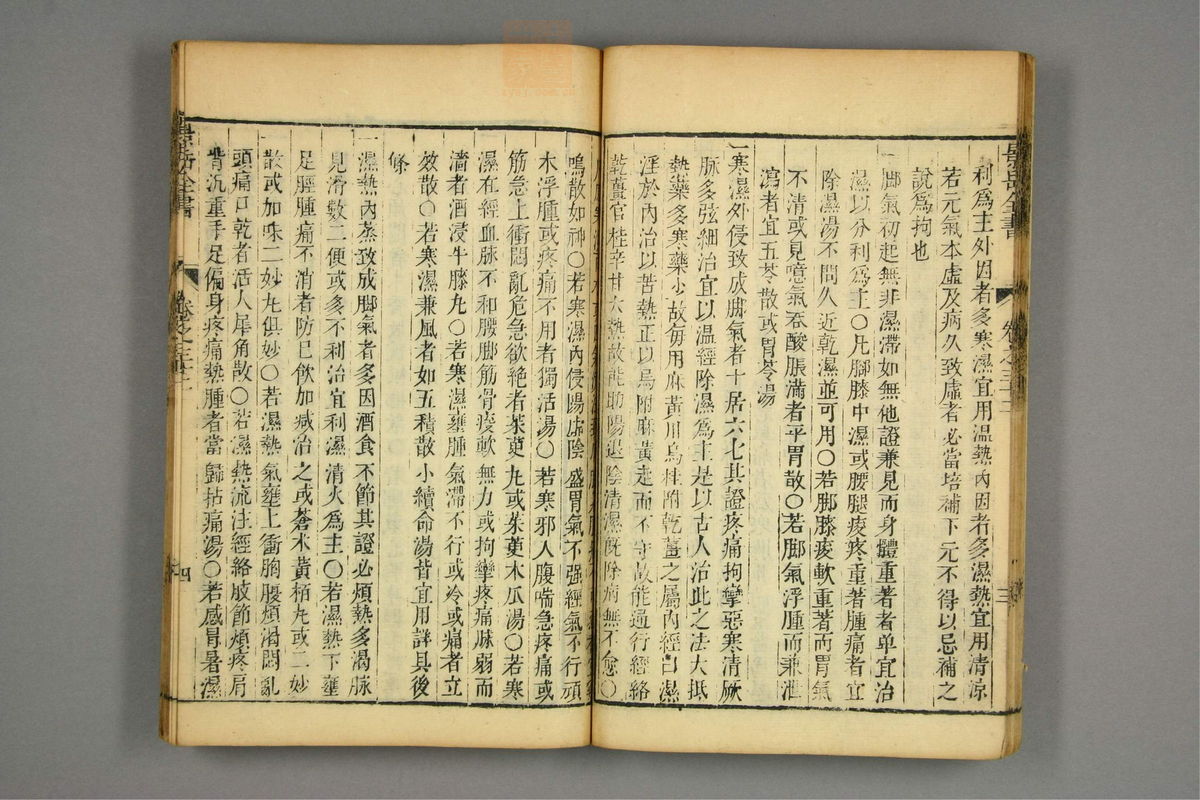 景岳全書
卷之三十二
三
利爲主外因者多寒濕宜用溫熱內因者多濕熱宜用清凉
若元氣本虛及病久致虛者必當培補下元不得以忌補之
說爲拘也
脚氣初起無非濕滯如無他證兼見而身體重著者单宜治
濕以分利爲主〇凡脚膝中濕或腰腿痠疼重著腫痛者宜
除濕湯不問久近乾濕並可用〇若脚膝痠軟重著而胃氣
不清或見噫氣吞酸脹滿者平胃散〇若脚氣浮腫而兼泄
瀉者宜五苓散或胃苓湯
一寒濕外侵致成脚氣者十居六七其證疼痛拘攣惡寒清厥
脉多弦細治宜以溫經除濕爲主是以古人治此之法大抵
熱藥多寒藥少故每用麻黃川烏桂附乾薑之屬內經曰濕
淫於內治以苦熱正以烏附麻黃走而不守故能通行經絡
乾薑官桂辛甘大熱故能助陽退陰清濕旣除病無不愈〇
鳴散如神〇若寒濕內侵陽虛陰盛胃氣不强經氣不行頑
木浮腫或疼痛不用者獨活湯〇若寒邪入腹喘急疼痛或
筋急上衝悶亂危急欲絶者茱萸丸或茱萸木瓜湯〇若寒
濕在經血脉不和腰脚筋骨痠軟無力或拘攣疼痛脉弱而
濇者酒浸牛膝丸〇若寒濕壅腫氣滯不行或冷或痛者立
效散〇若寒濕兼風者如五積散小續命湯皆宜用詳具後
條
一濕熱內蒸致成脚氣者多因酒食不節其證必煩熱多渴脉
見滑數二便或多不利治宜利濕清火爲主〇若濕熱下壅
足脛腫痛不消者防巳飲加減治之或蒼术黃栢丸或二妙
散或加味二妙丸俱妙〇若濕熱氣壅上衝胸腹煩渴悶亂
頭痛口乾者活人犀角散〇若濕熱流注經絡肢節煩疼肩
背沉重手足徧身疼痛熱腫者當歸拈痛湯〇若感冒暑濕
景岳全書
卷之三十二
四